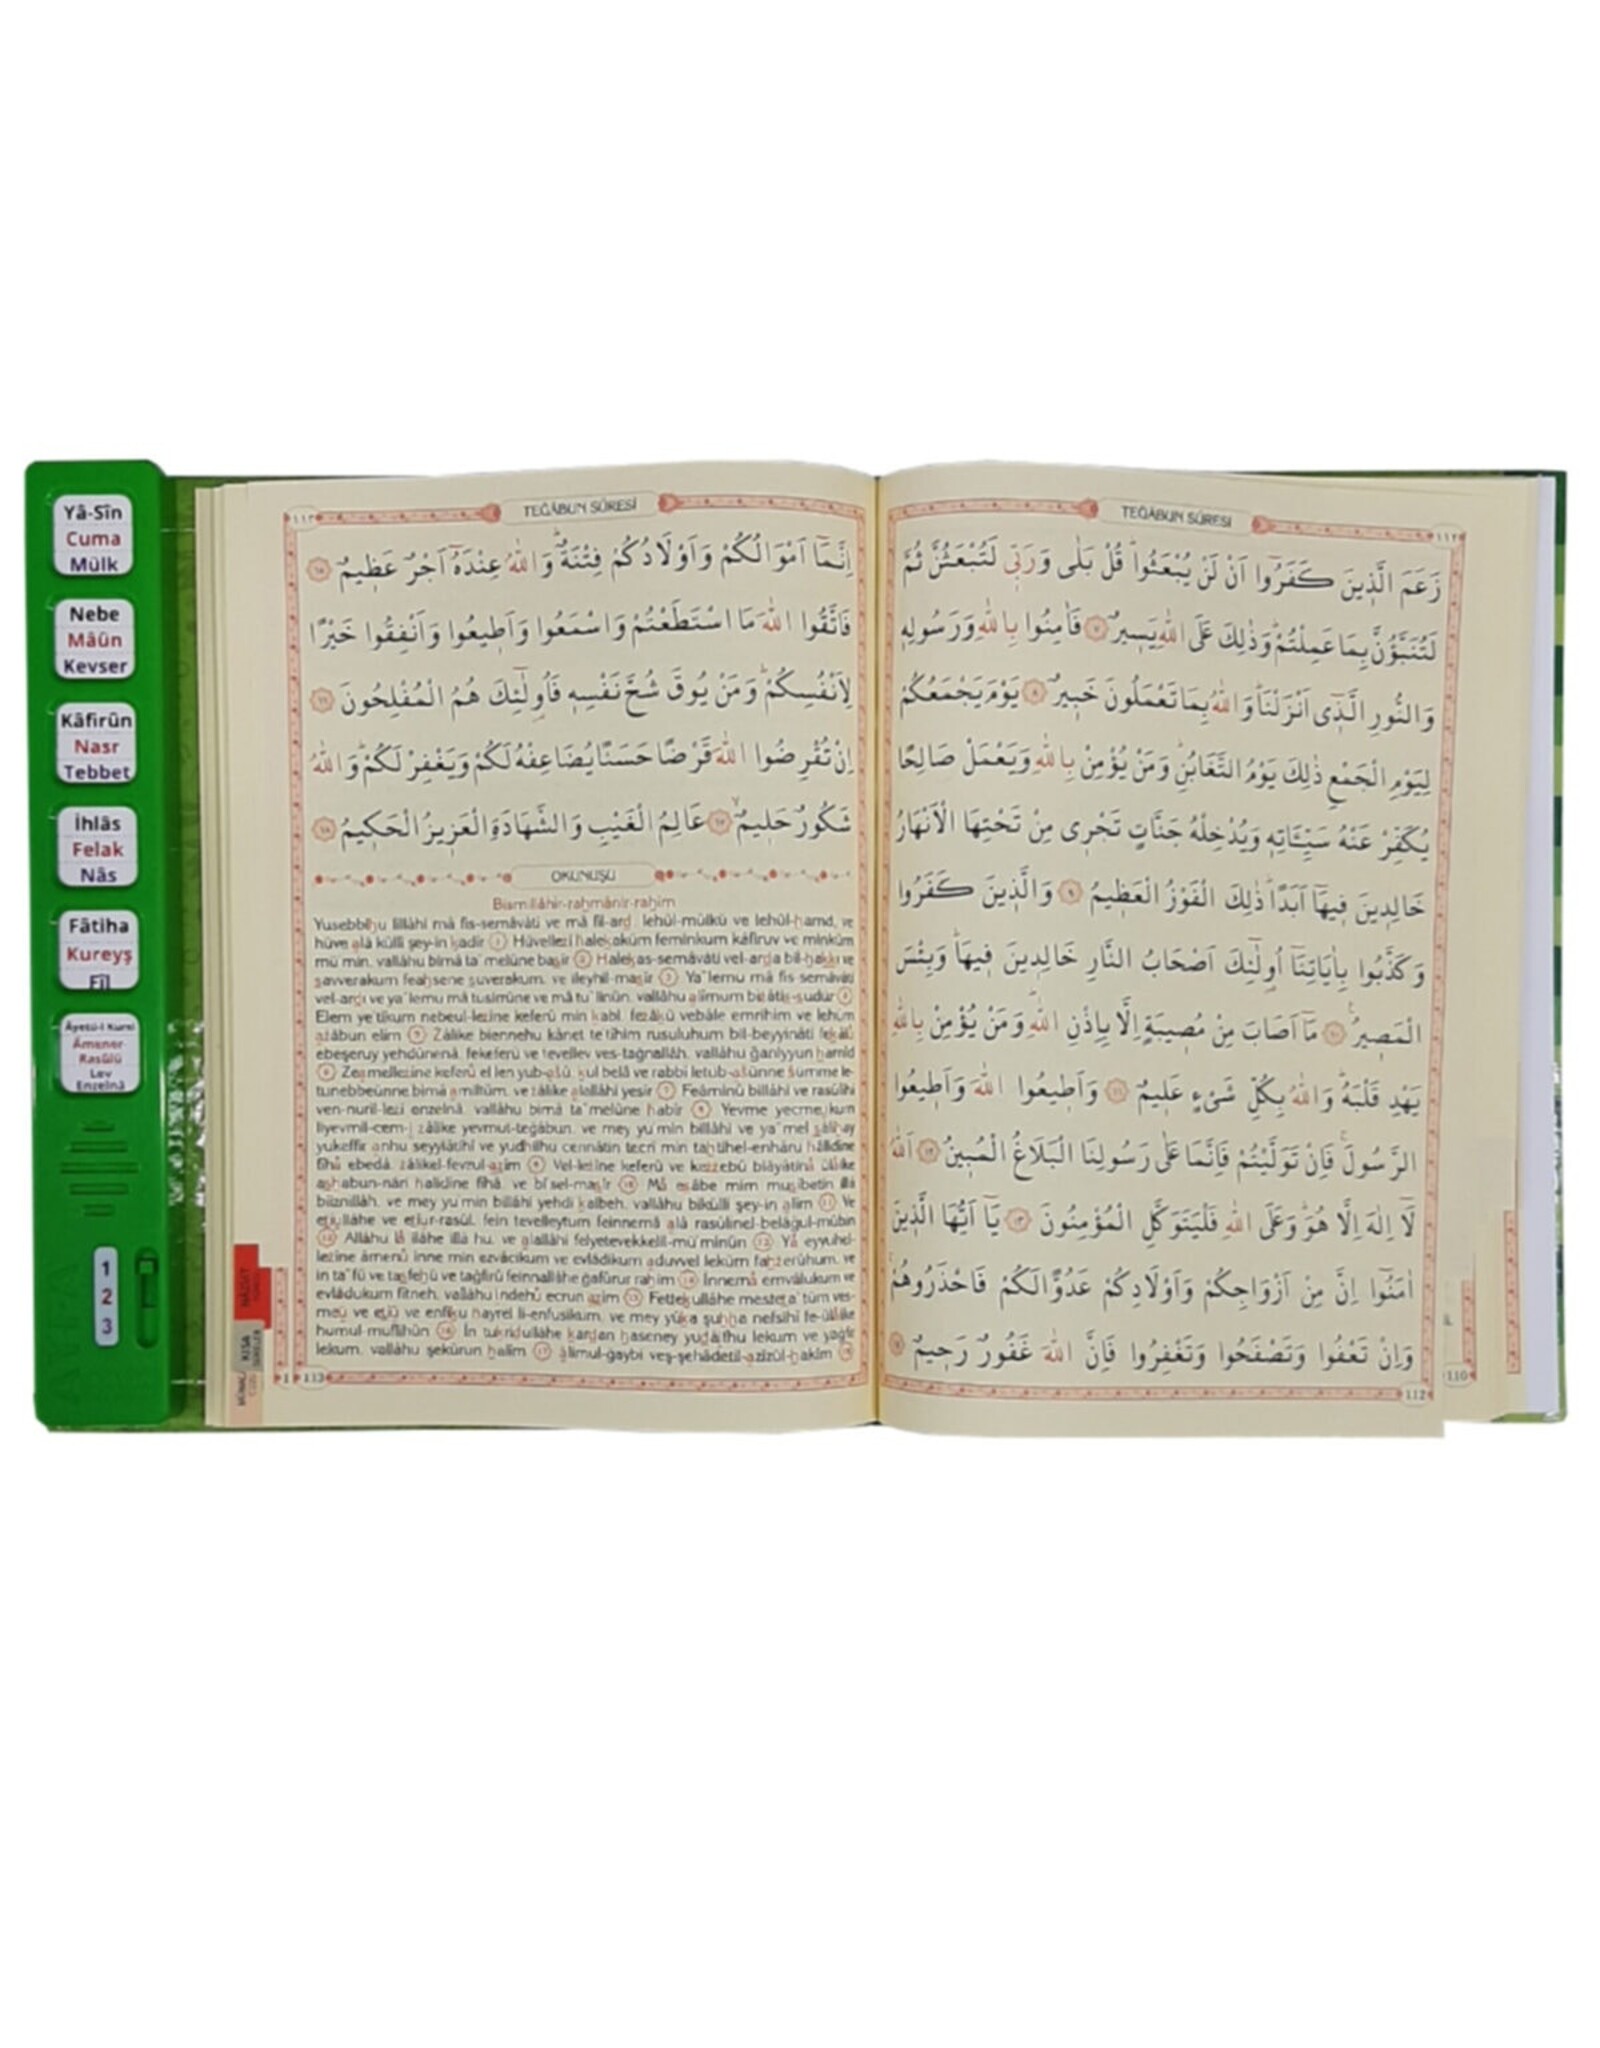 Yâ-Sîn
Cuma
Mülk
Nebe
Mâûn
Kevser
Kâfirûn
Nasr
Tebbet
İhlâs
Felak
Nâs
Fâtiha
Kureyş
Fîl
Âyetü-l Kursî
Âmener-
Rasûlü
Lev
Enzelnâ
1
2
3
TEĞÂBUN SÛRESİ
١١٢
زَعَمَ الَّذِينَ كَفَرُٓوا اَنْ لَنْ يُبْعَثُوا قُلْ بَلٰى وَرَبِّي لَتُبْعَثُنَّ ثُمَّ
لَتُنَبَّؤُنَّ بِمَا عَمِلْتُمْ وَذٰلِكَ عَلَى اللّٰهِ يَسِيرٌ ٧ فَاٰمِنُوا بِاللّٰهِ وَرَسُولِهِ
وَالنُّورِ الَّذٖٓي اَنْزَلْنَا وَاللّٰهُ بِمَا تَعْمَلُونَ خَبِيرٌ ٨ يَوْمَ يَجْمَعُكُمْ
لِيَوْمِ الْجَمْعِ ذٰلِكَ يَوْمُ التَّغَابُنِ وَمَنْ يُؤْمِنْ بِاللّٰهِ وَيَعْمَلْ صَالِحًا
يُكَفِّرْ عَنْهُ سَيِّـَٔاتِهِ وَيُدْخِلْهُ جَنَّاتٍ تَجْرِى مِنْ تَحْتِهَا الْاَنْهَارُ
خَالِدِينَ فِيهَٓا اَبَدًا ذٰلِكَ الْفَوْزُ الْعَظِيمُ ٩ وَالَّذِينَ كَفَرُوا
وَكَذَّبُوا بِاٰيَاتِنَٓا اُولٰٓئِكَ اَصْحَابُ النَّارِ خَالِدِينَ فِيهَا وَبِئْسَ
الْمَصِيرُ ١٠ مَٓا اَصَابَ مِنْ مُصِيبَةٍ اِلَّا بِاِذْنِ اللّٰهِ وَمَنْ يُؤْمِنْ بِاللّٰهِ
يَهْدِ قَلْبَهُ وَاللّٰهُ بِكُلِّ شَيْءٍ عَلِيمٌ ١١ وَاَطِيعُوا اللّٰهَ وَاَطِيعُوا
الرَّسُولَ فَاِنْ تَوَلَّيْتُمْ فَاِنَّمَا عَلٰى رَسُولِنَا الْبَلَاغُ الْمُبِينُ ١٢ اَللّٰهُ
لَٓا اِلٰهَ اِلَّا هُوَ وَعَلَى اللّٰهِ فَلْيَتَوَكَّلِ الْمُؤْمِنُونَ ١٣ يَٓا اَيُّهَا الَّذِينَ
اٰمَنُٓوا اِنَّ مِنْ اَزْوَاجِكُمْ وَاَوْلَادِكُمْ عَدُوًّا لَكُمْ فَاحْذَرُوهُمْ
وَاِنْ تَعْفُوا وَتَصْفَحُوا وَتَغْفِرُوا فَاِنَّ اللّٰهَ غَفُورٌ رَحِيمٌ ١٤
112
110
TEĞÂBUN SÛRESİ
١١٣
اِنَّمَٓا اَمْوَالُكُمْ وَاَوْلَادُكُمْ فِتْنَةٌ وَاللّٰهُ عِنْدَهُٓ اَجْرٌ عَظِيمٌ ١٥
فَاتَّقُوا اللّٰهَ مَا اسْتَطَعْتُمْ وَاسْمَعُوا وَاَطِيعُوا وَاَنْفِقُوا خَيْرًا
لِاَنْفُسِكُمْ وَمَنْ يُوقَ شُحَّ نَفْسِهِ فَاُولٰٓئِكَ هُمُ الْمُفْلِحُونَ ١٦
اِنْ تُقْرِضُوا اللّٰهَ قَرْضًا حَسَنًا يُضَاعِفْهُ لَكُمْ وَيَغْفِرْ لَكُمْ وَاللّٰهُ
شَكُورٌ حَلِيمٌ ١٧ عَالِمُ الْغَيْبِ وَالشَّهَادَةِ الْعَزِيزُ الْحَكِيمُ ١٨
OKUNUŞU
Bismillâhir-rahmânir-rahîm
Yusebbihu lillâhi mâ fis-semâvâti ve mâ fil-ard. lehül-mülkü ve lehül-hamd, ve
hüve alâ külli şey-in kadîr 1 Hüvellezî halekaküm feminkum kâfiruv ve minküm
mü'min. vallâhu bimâ ta'melûne basîr 2 Halekas-semâvâti vel-arda bil-hakkı ve
savverakum feahsene suverakum. ve ileyhil-masîr 3 Ya'lemu mâ fis-semâvâti
vel-ardı ve ya'lemu mâ tusirrûne ve mâ tu'linûn. vallâhu alîmum bizâtis-sudûr 4
Elem ye'tikum nebeul-lezîne keferû min kabl. fezâkû vebâle emrihim ve lehüm
azâbun elîm 5 Zâlike biennehu kânet te'tîhim rusuluhum bil-beyyinâti fekâlû
ebeşeruy yehdûnenâ. fekeferû ve tevellev ves-tağnallâh. vallâhu ğaniyyun hamîd
6 Zeamellezîne keferû el len yub-asû. kul belâ ve rabbî letub-asünne sümme le-
tunebbeünne bimâ amiltüm. ve zâlike alallâhi yesîr 7 Feâminû billâhi ve rasûlihî
ven-nuril-lezî enzelnâ. vallâhu bimâ ta'melûne habîr 8 Yevme yecmeukum
liyevmil-cem-i zâlike yevmut-teğâbun. ve mey yu'min billâhi ve ya'mel sâlihay
yukeffir anhu seyyiâtihî ve yudhilhu cennâtin tecrî min tahtihel-enhâru hâlidîne
fîhâ ebedâ. zâlikel-fevzul-azîm 9 Vel-lezîne keferû ve kezzebû biâyâtinâ ülâike
ashabun-nâri hâlidîne fîhâ. ve bi'sel-masîr 10 Mâ esâbe mim musîbetin illâ
biiznillâh. ve mey yu'min billâhi yehdi kalbeh. vallâhu bikülli şey-in alîm 11 Ve
etîullâhe ve etîur-rasûl. fein tevelleytum feinnemâ alâ rasûlinel-belâğul-mübîn
12 Allâhu lâ ilâhe illâ hu. ve alallâhi felyetevekkelil-mü'minûn 13 Yâ eyyuhel-
lezîne âmenû inne min ezvâcikum ve evlâdikum aduvvel leküm fahzerûhum. ve
in ta'fû ve tasfehû ve tağfirû feinnallâhe ğafûrur rahîm 14 İnnemâ emvâlukum ve
evlâdukum fitneh. vallâhu indehû ecrun azîm 15 Fettekullâhe mesteta'tüm ves-
meû ve etîû ve enfiku hayrel li-enfusikum. ve mey yûka şuhha nefsihî fe-ülâike
humul-muflihûn 16 İn tukridullâhe kardan haseney yudâifhu lekum ve yağfir
lekum. vallâhu şekûrun halîm 17 âlimul-ğaybi veş-şehâdetil-azîzül-hakîm 18
113
KISA